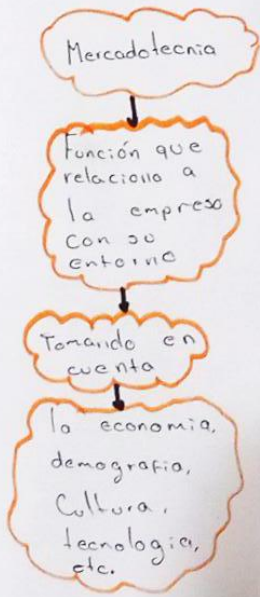 Mercadotecnia
Función que
relaciona a
la empresa
con su
entorno
Tomando en
cuenta
la economia,
demografia,
Cultura,
tecnologia,
etc.